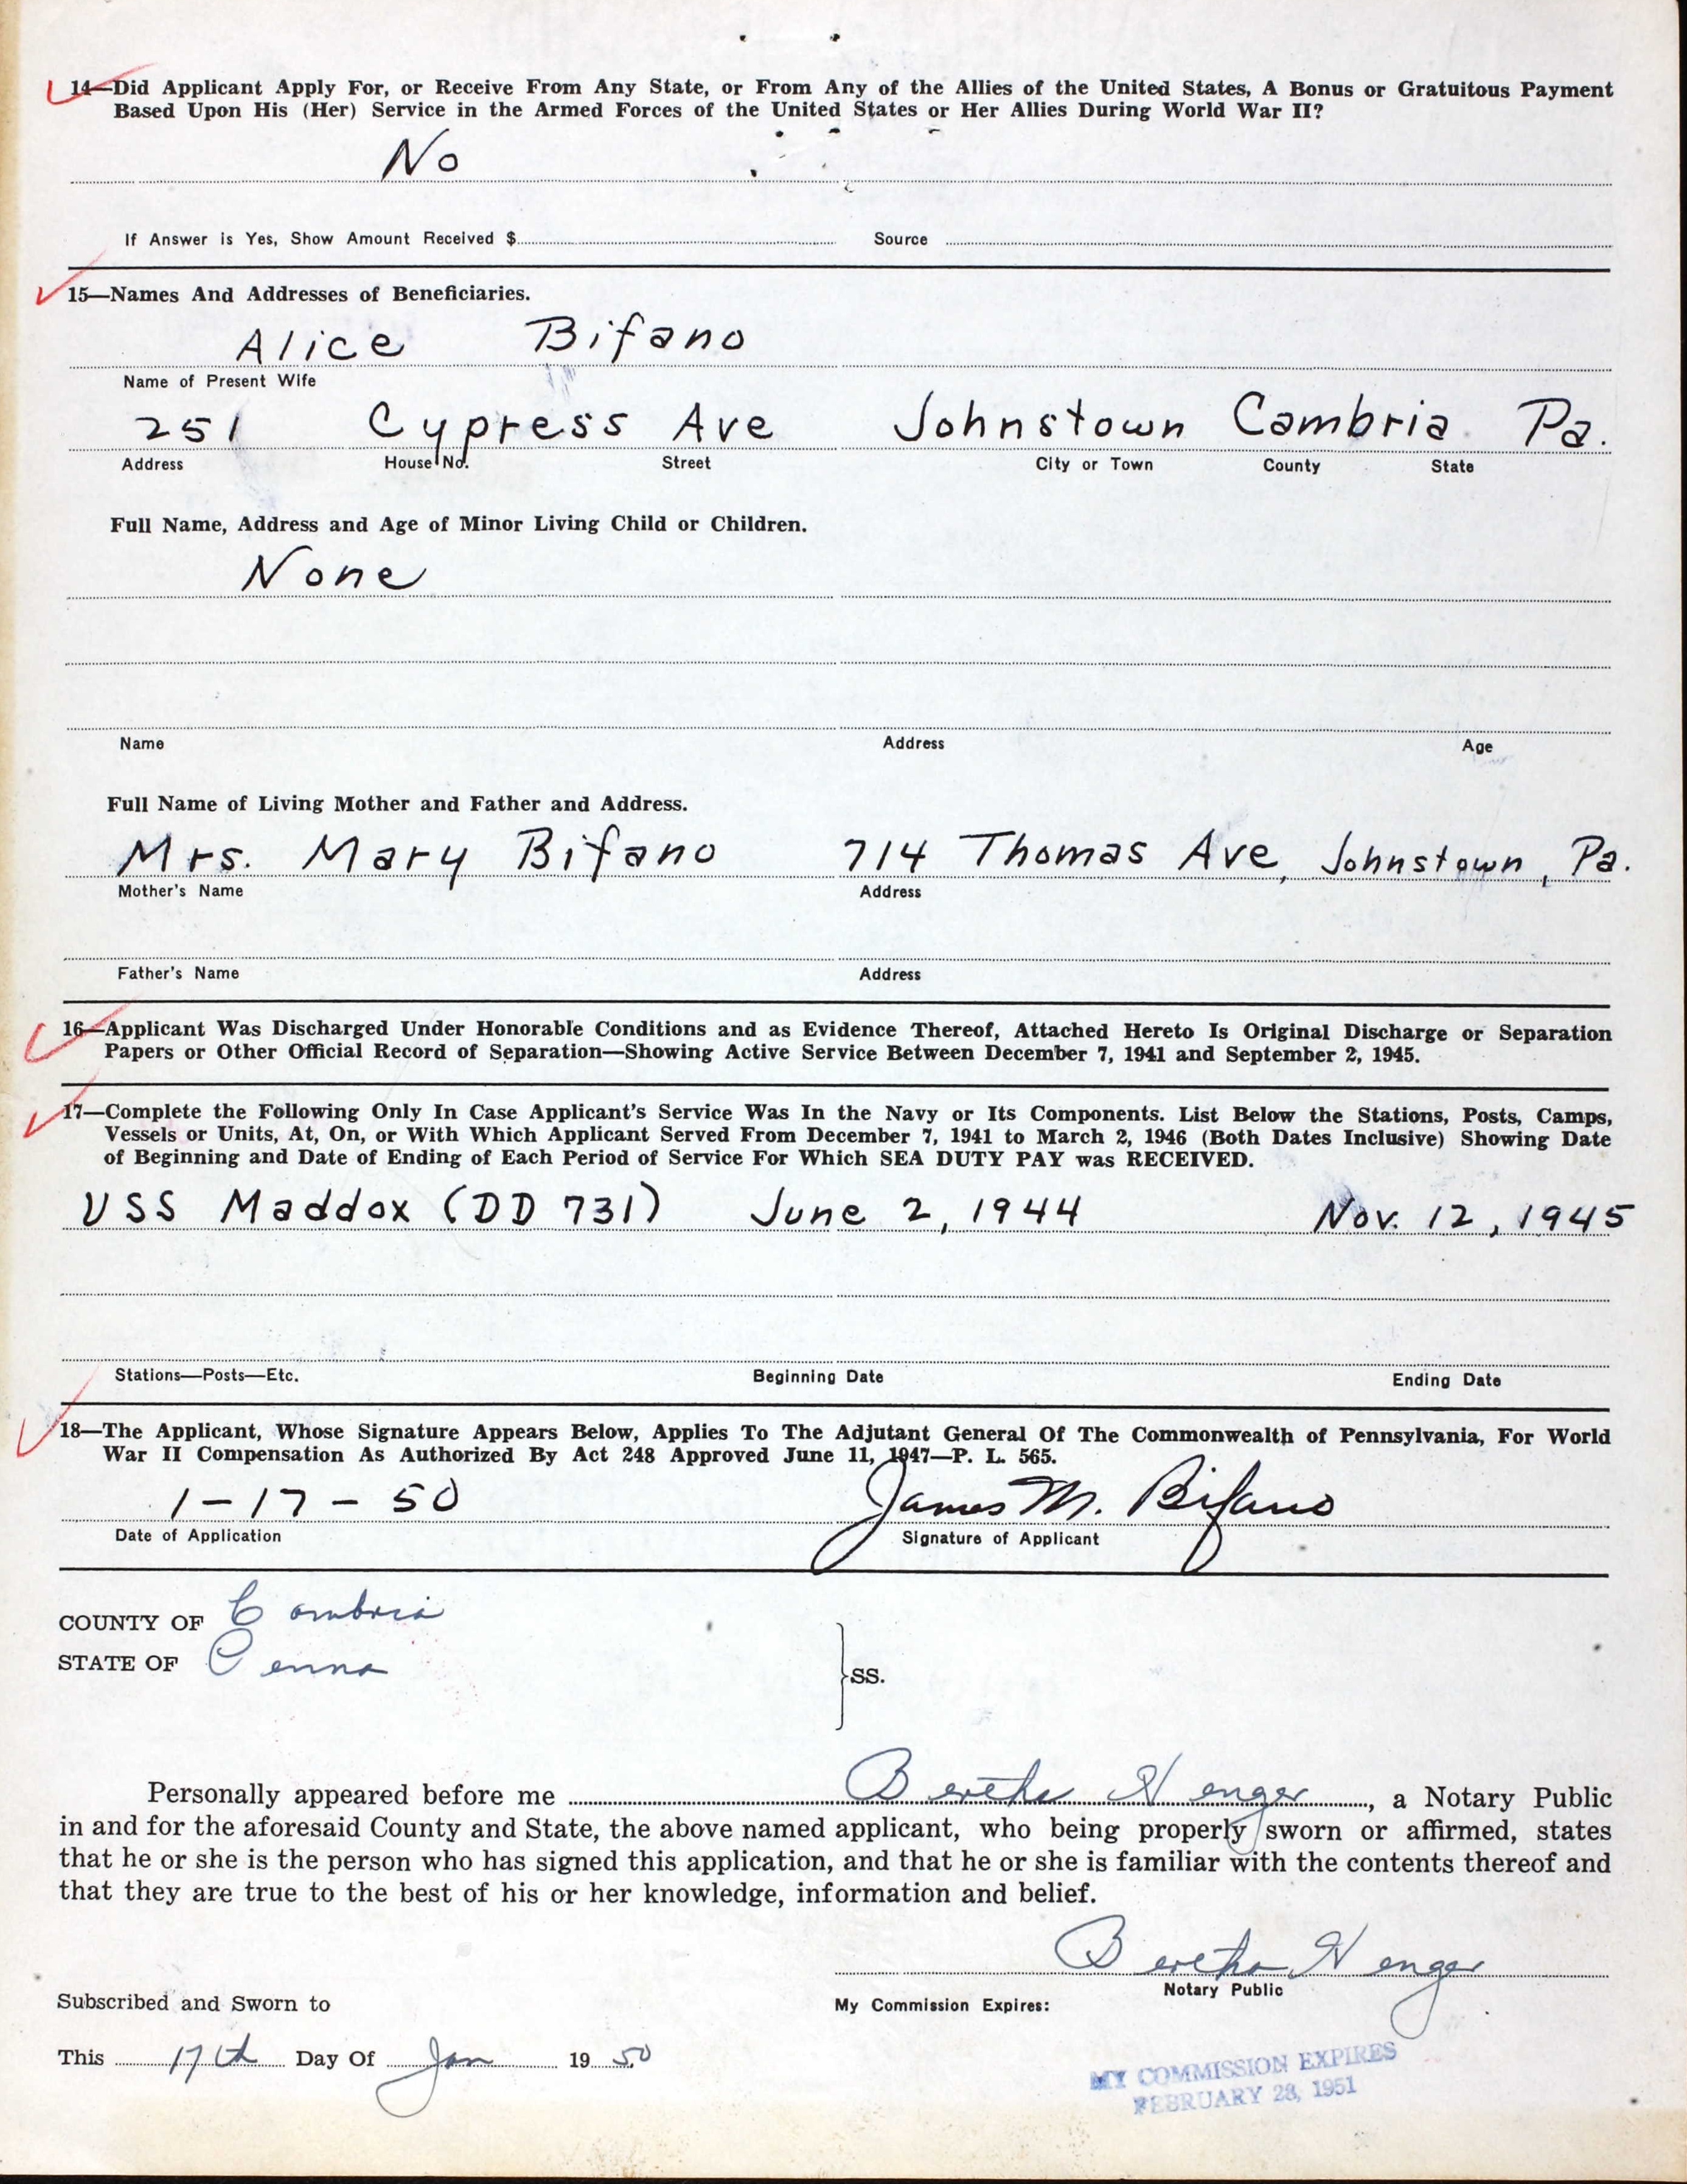 14—Did Applicant Apply For, or Receive From Any State, or From Any of the Allies of the United States, A Bonus or Gratuitous Payment
Based Upon His (Her) Service in the Armed Forces of the United States or Her Allies During World War II?
No
If Answer is Yes, Show Amount Received $ Source
15—Names And Addresses of Beneficiaries.
Alice Bifano
Name of Present Wife
251 Cypress Ave Johnstown Cambria Pa.
Address House No. Street City or Town County State
Full Name, Address and Age of Minor Living Child or Children.
None
Name Address Age
Full Name of Living Mother and Father and Address.
Mrs. Mary Bifano 714 Thomas Ave, Johnstown, Pa.
Mother's Name Address
Father's Name Address
16—Applicant Was Discharged Under Honorable Conditions and as Evidence Thereof, Attached Hereto Is Original Discharge or Separation
Papers or Other Official Record of Separation—Showing Active Service Between December 7, 1941 and September 2, 1945.
17—Complete the Following Only In Case Applicant's Service Was In the Navy or Its Components. List Below the Stations, Posts, Camps,
Vessels or Units, At, On, or With Which Applicant Served From December 7, 1941 to March 2, 1946 (Both Dates Inclusive) Showing Date
of Beginning and Date of Ending of Each Period of Service For Which SEA DUTY PAY was RECEIVED.
USS Maddox (DD 731) June 2, 1944 Nov. 12, 1945
Stations—Posts—Etc. Beginning Date Ending Date
18—The Applicant, Whose Signature Appears Below, Applies To The Adjutant General Of The Commonwealth of Pennsylvania, For World
War II Compensation As Authorized By Act 248 Approved June 11, 1947—P. L. 565.
1-17-50 James M. Bifano
Date of Application Signature of Applicant
COUNTY OF Cambria
STATE OF Penna
SS.
Personally appeared before me Bertha Wenger, a Notary Public
in and for the aforesaid County and State, the above named applicant, who being properly sworn or affirmed, states
that he or she is the person who has signed this application, and that he or she is familiar with the contents thereof and
that they are true to the best of his or her knowledge, information and belief.
Bertha Wenger
Notary Public
Subscribed and Sworn to My Commission Expires:
This 17th Day Of Jan 19 50
MY COMMISSION EXPIRES
FEBRUARY 28, 1951